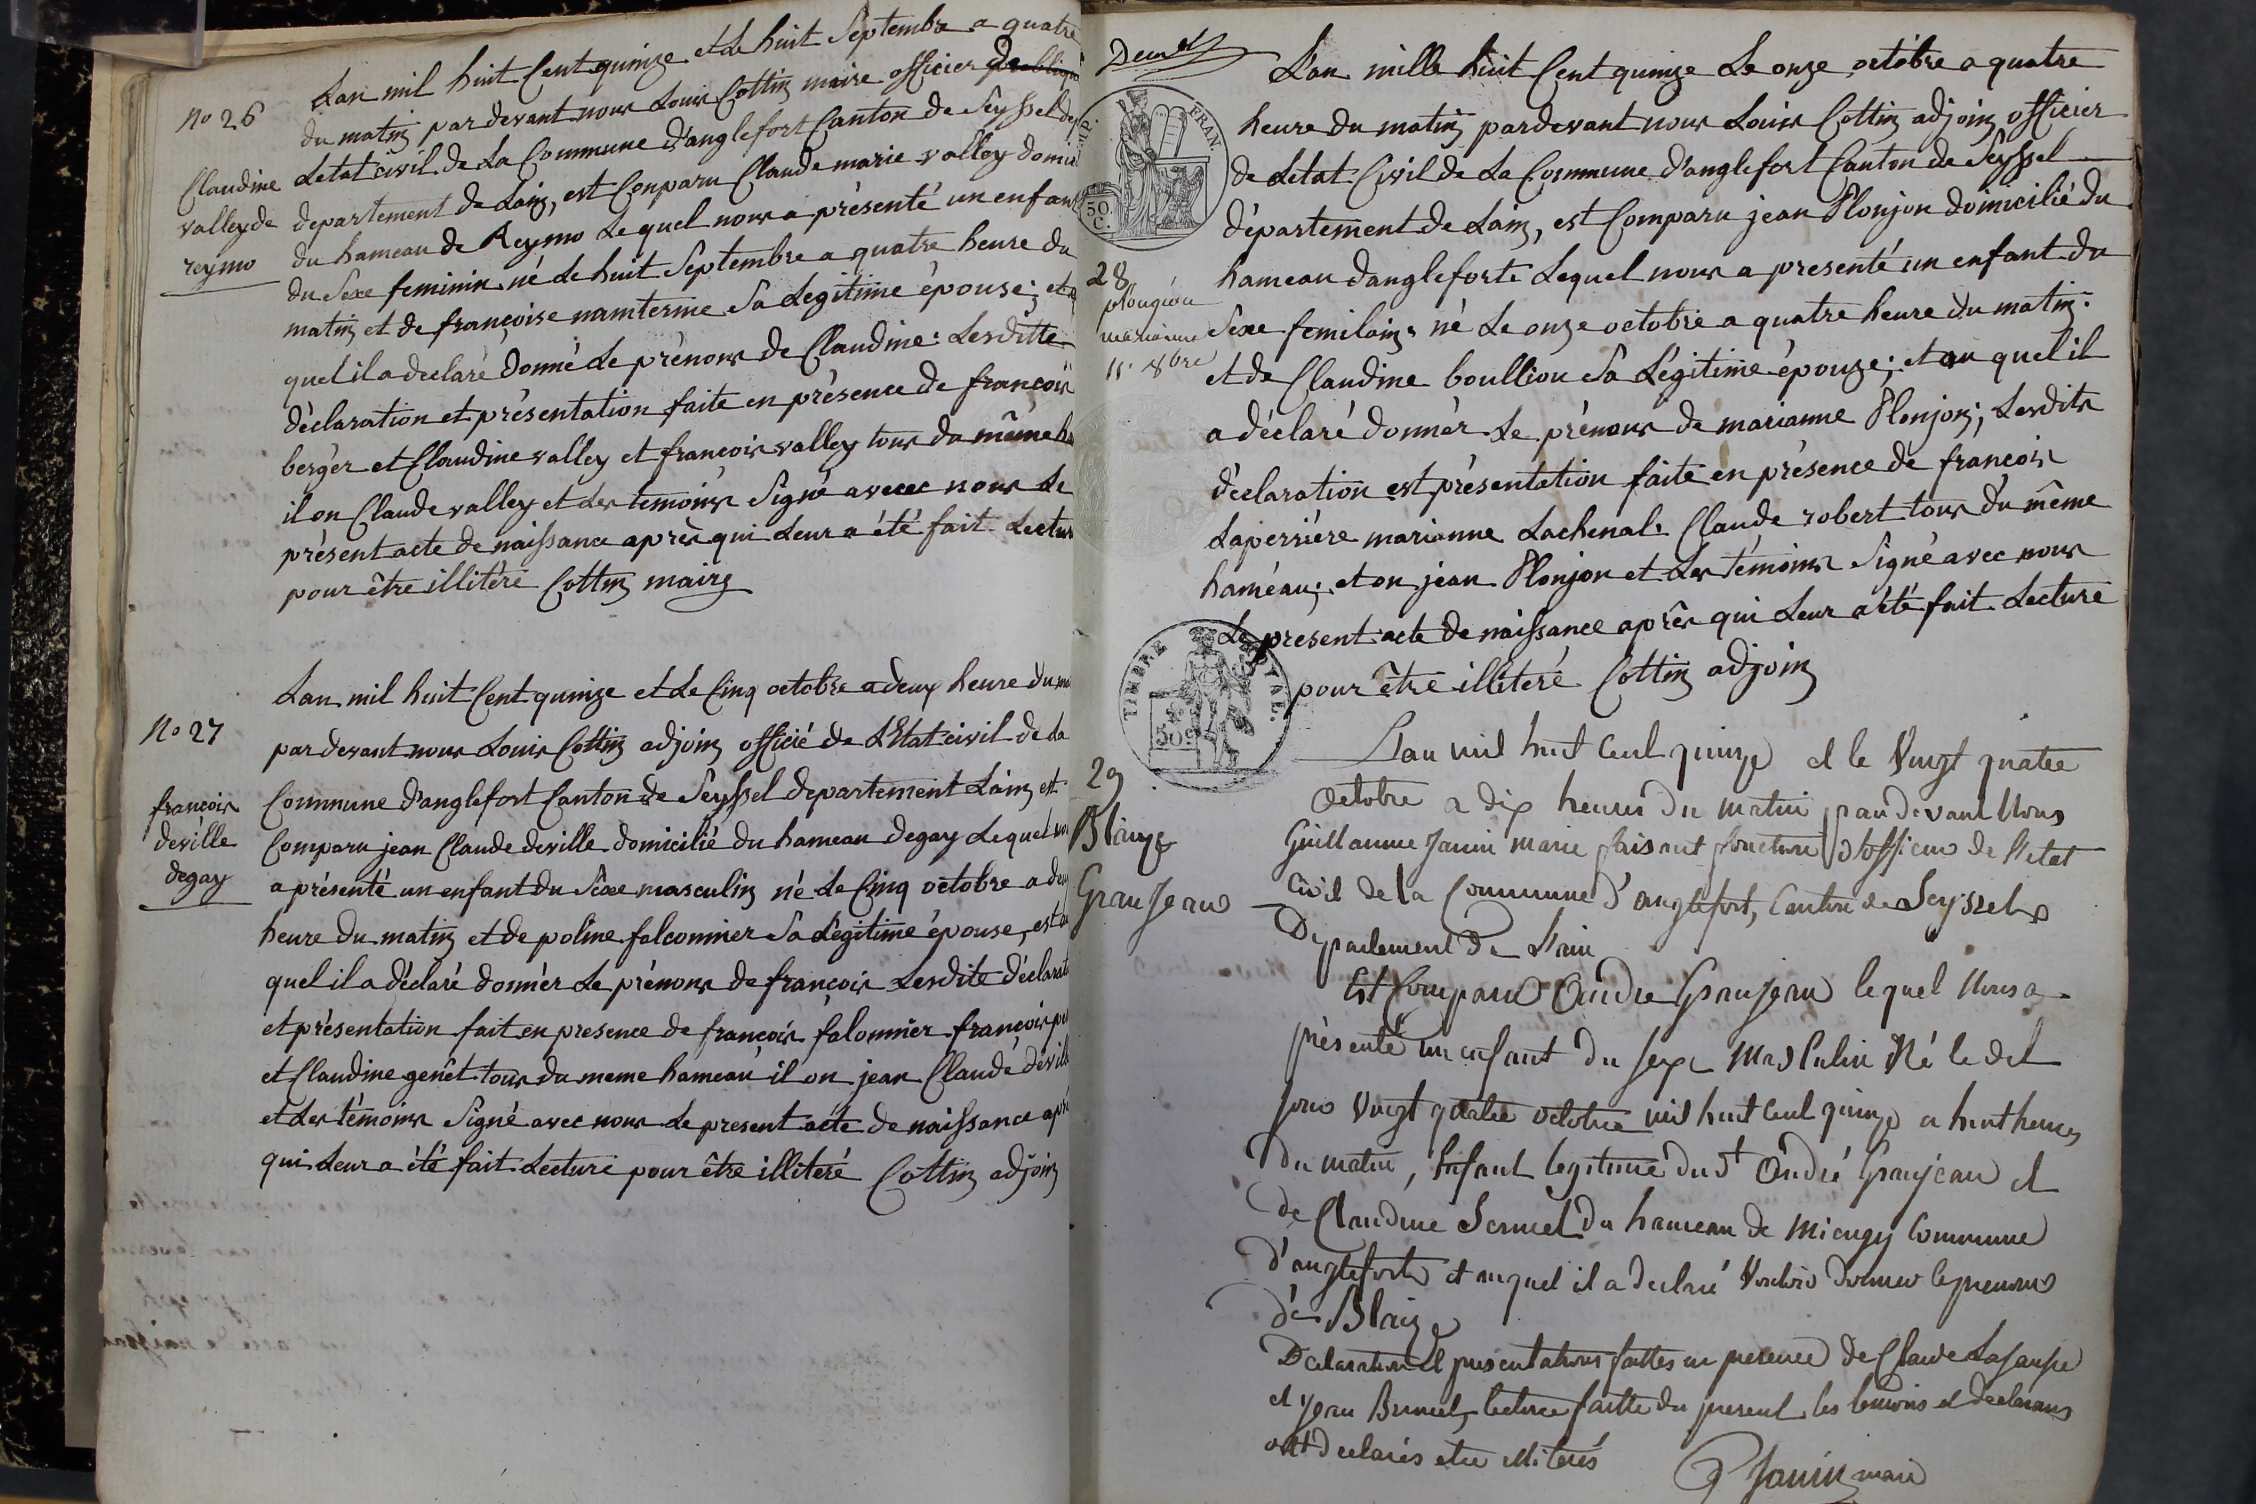 No 26
Claudine
valley de
reymo
Lan mil huit Cent quinze et Le huit Septembre a quatre
du matin par devant nous Louis Cottin maire officier
Letat civil de La Commune d'anglefort Canton de Seyssel
departement de Lain, est Conparu Claude marie valley
du hameau de Reymo Le quel nous a présenté un enfant
du Sexe feminin né Le huit Septembre a quatre heure du
matin et de françoise namtermé Sa Legitime épouse; et
quel il a declaré donné Le prénons de Claudine: Lesditte
déclaration et présentation faite en présence de francois
berger et Claudine valley et francois valley tous du même
il on Claude valley et Les temoins Signé avecec nous Le
présent acte de naissance après qui Leur a été fait Lectur
pour être illitéré Cottin maire
No 27
francois
deville
degay
Lan mil huit Cent quinze et Le Cinq octobre a deux heure du
par devant nous Louis Cottin adjoin officié de L'Etat civil de La
Commune d'anglefort Canton de Seyssel departement Lain est
Comparu jean Claude deville domicilié du hameau degay Lequel
a présenté un enfant du Sexe masculin né Le Cinq octobre a
heure du matin et de poline falconnier Sa Légitime épouse, est
quel il a déclaré donnér Le prénons de francois Lesdite
et présentation fait en presence de francois falonnier francois
et Claudine genét tous du meme hameau il on jean Claude
et Les témoins Signé avec nous Le present acte de naissance
qui Leur a été fait Lecture pour être illiteré Cottin adjoin
FRAN.
50.
C.
L'an mille huit Cent quinze Le onze octobre a quatre
heure du matin pardevant nous Louis Cottin adjoin officier
de Letat Civil de La Commune d'anglefort Canton de Seyssel
département de Lain, est Comparu jean Plonjon domicilié du
28
marianne
11. 8bre
hameau d'angleforte Lequel nous a presenté un enfant du
Sexe femilain né Le onze octobre a quatre heure du matin:
et de Claudine boullion Sa Légitime épouze; et au quel il
a déclaré donnér Le prénons de marianne Plonjon; Lesdits
déclaration est présentation faite en présence de francois
Laperriére marianne Lachenal Claude robert tous du même
haméau; et on jean Plonjon et Les témoins Signé avec nous
Le present acte de naissance après qui Leur a été fait Lecture
pour être illiteré Cottin adjoin
TIMBRE ROYAL.
50c
29
Blaize
Granjean
L'an mil huit Cent quinze et le Vingt quatre
Octobre a dix heures du matin pardevant Nous
Guillaume Janin maire faisant fonction d'officier de l'etat
Civil de la Commune d'anglefort, Canton de Seyssel
Departement de l'ain
Est Comparu Andre Granjean lequel Nous a
présenté un enfant du sexe Masculin Né le dit
jour Vingt quatre octobre mil huit Cent quinze a huit heures
du matin, Enfant legitime du st André Granjean et
de Claudine du hameau de Miengy Commune
d'anglefort et auquel il a declaré Vouloir donner le prenom
de Blaize
Declaration et presentations faittes en presence de Claude
et jean Brunet, lecture faitte du present les temoins et declarans
ont declarés etre illiterés
Janin maire